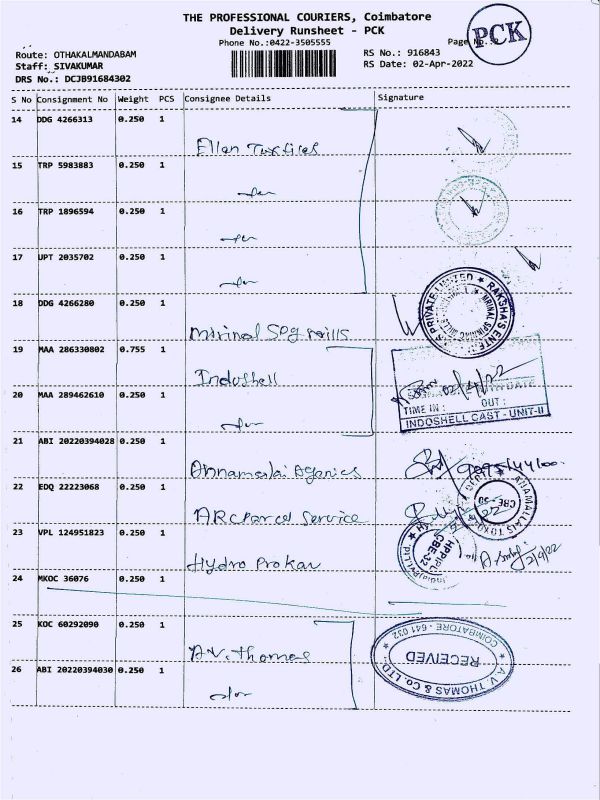 THE PROFESSIONAL COURIERS, Coimbatore
Delivery Runsheet - PCK
Phone No.:0422-3505555
Page No.:
PCK
Route: OTHAKALMANDABAM
Staff: SIVAKUMAR
DRS No.: DCJB91684302
RS No.: 916843
RS Date: 02-Apr-2022
S No Consignment No Weight PCS Consignee Details Signature
14 DDG 4266313 0.250 1
15 TRP 5983883 0.250 1
16 TRP 1896594 0.250 1
17 UPT 2035702 0.250 1
18 DDG 4266280 0.250 1 Mrinal Spg mills
19 MAA 286330802 0.755 1 Indoshell
20 MAA 289462610 0.250 1
02/4/22
DATE
TIME IN : OUT :
INDOSHELL CAST - UNIT-II
21 ABI 20220394028 0.250 1 Annamalai Agencies
22 EDQ 22223068 0.250 1 ARC Parcel Service
CBE-50
23 VPL 124951823 0.250 1 Hydro Prokav
HPPIPL
CBE-32
2/4/22
24 MKOC 36076 0.250 1
25 KOC 60292090 0.250 1 A.V. Thomas
26 ABI 20220394030 0.250 1
A. V. THOMAS & CO. LTD.
RECEIVED
COIMBATORE - 641 032